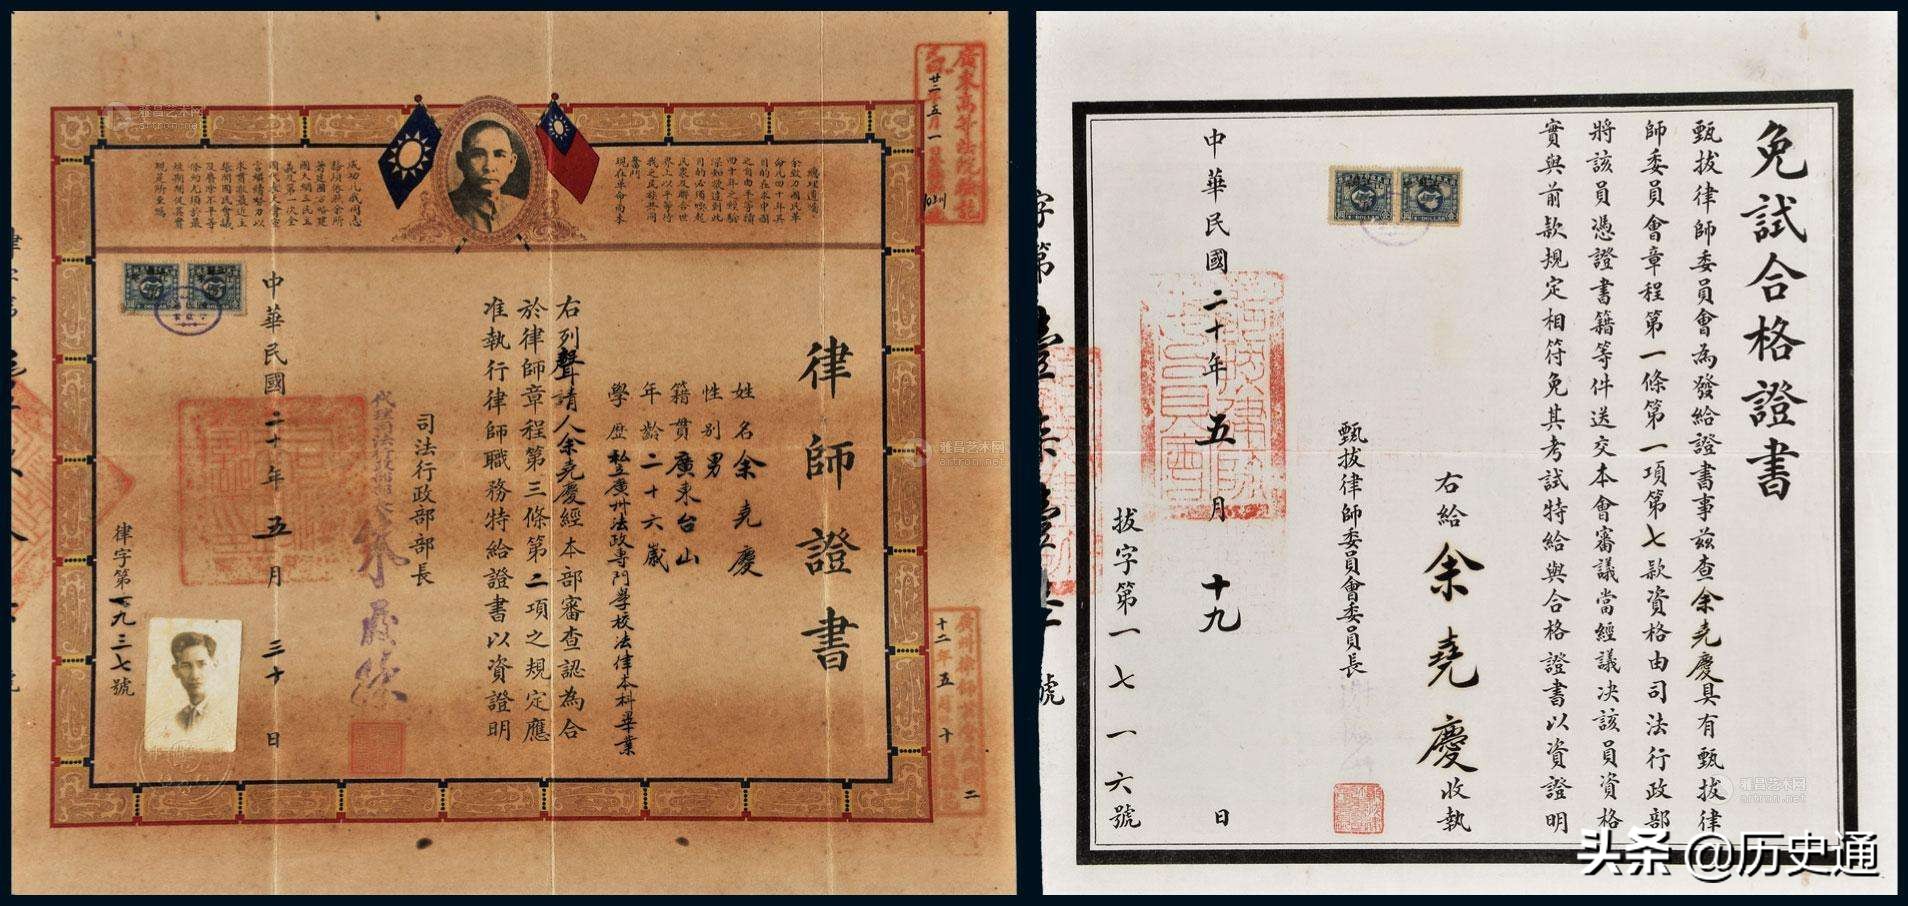 律師證書
姓名余堯慶
性别男
籍貫廣東台山
年齡二十六歲
學歷私立廣州法政專門學校法律本科畢業
右列聲請人余堯慶經本部審查認為合
於律師章程第三條第二項之規定應
准執行律師職務特給證書以資證明
司法行政部部長
中華民國二十年五月三十日
律字第一九三七號
總理遺囑
余致力國民革
命凡四十年其
目的在求中國
之自由平等積
四十年之經驗
深知欲達到此
目的必須喚起
民眾及聯合世
界上以平等待
我之民族共同
奮鬥
現在革命尚未
成功凡我同志
務須依照余所
著建國方略建
國大綱三民主
義及第一次全
國代表大會宣
言繼續努力以
求貫徹最近主
張開國民會議
及廢除不平等
條約尤須於最
短期間促其實
現是所至囑
雅昌艺术网
artron.net
雅昌艺术网
artron.net
免試合格證書
甄拔律師委員會為發給證書事茲查余堯慶具有甄拔律
師委員會章程第一條第一項第七款資格由司法行政部
將該員憑證書籍等件送交本會審議當經議決該員資格
實與前款規定相符免其考試特給與合格證書以資證明
右給余堯慶收執
甄拔律師委員會委員長
中華民國二十年五月十九日
拔字第一七一六號
雅昌艺术网
artron.net
头条 @历史通